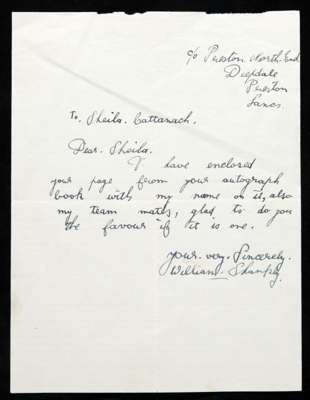 c/o Preston North End
Deepdale
Preston
Lancs.
To, Sheila. Cattanach.
Dear. Sheila.
I have enclosed
your page from your autograph
book with my name on it, also
my team mates, glad to do you
the favour if it is one.
yours. very. Sincerely.
William. Shankly.